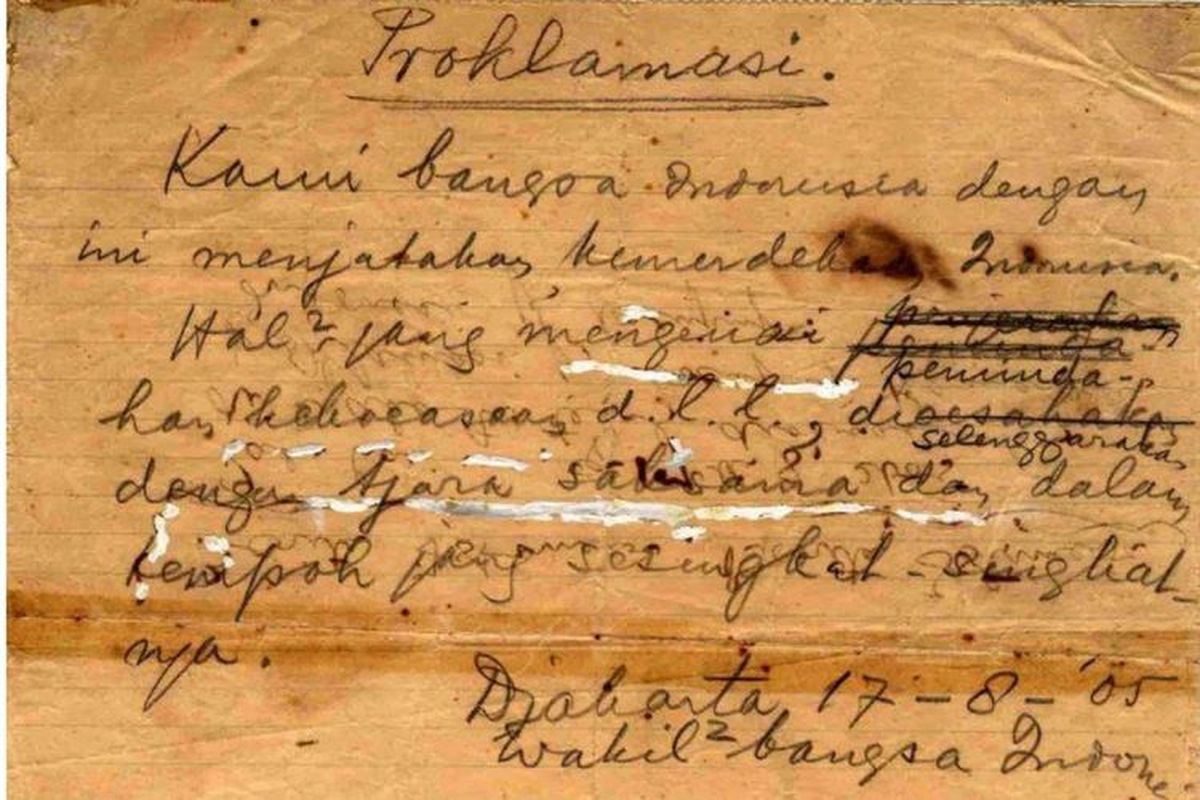 Proklamasi.
Kami bangsa Indonesia dengan
ini menjatakan kemerdekaan Indonesia.
Hal² jang mengenai
peminda-
han kekoeasaan d.l.l., di
selenggarakan
dengan tjara saksama dan dalam
tempoh jang sesingkat-singkat-
nja.
Djakarta 17-8-'05
Wakil² bangsa Indone